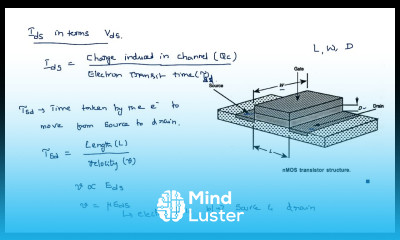 Ids in terms Vds.
L, W, D
Ids = Charge induced in channel (Qc)
Electron Transit time (τsd)
τsd → Time taken by the e⁻ to
move from source to drain.
τsd = Length (L)
velocity (v)
v ∝ Eds
v = μEds
source & drain
Gate
Source
W
D
Drain
L
nMOS transistor structure.
Mind
Luster